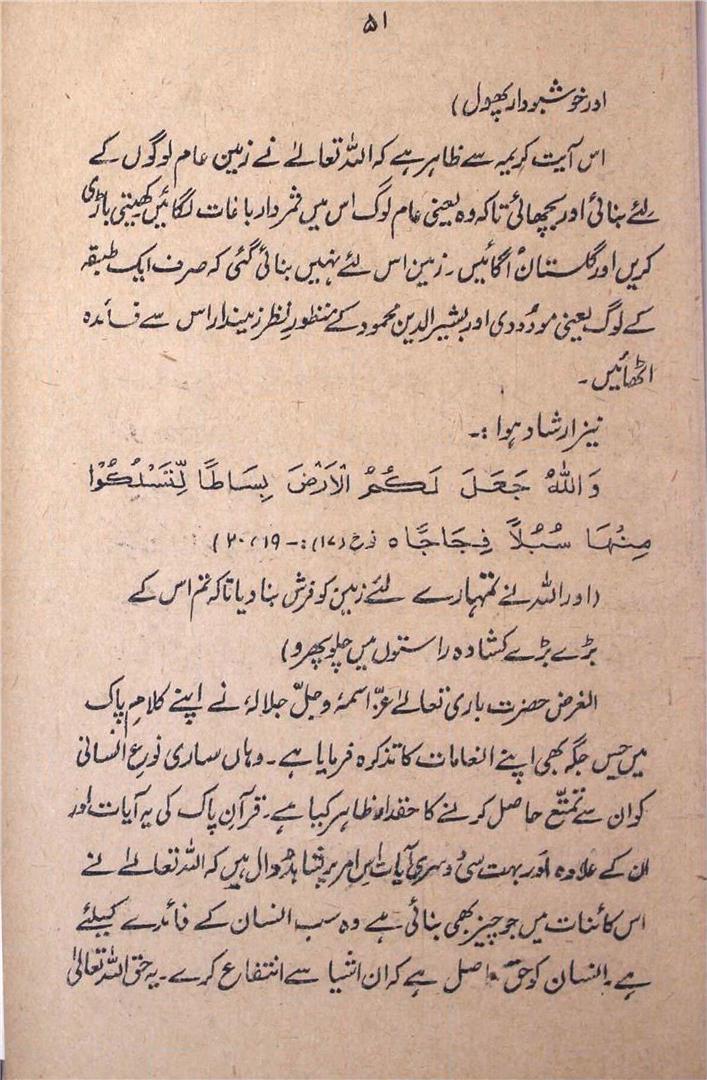 ۵۱
اور خوشبودار پھول)
اس آیت کریمہ سے ظاہر ہے کہ اللہ تعالےٰ نے زمین عام لوگوں کے
لئے بنائی اور بچھائی تاکہ وہ یعنی عام لوگ اس میں ثمردار باغات لگائیں کھیتی باڑی
کریں اور گلستان اگائیں۔ زمین اس لئے نہیں بنائی گئی کہ صرف ایک طبقہ
کے لوگ یعنی مودودی اور بشیر الدین محمود کے منظورِ نظر زمیندار اس سے فائدہ
اٹھائیں۔
نیز ارشاد ہوا :۔
وَاللّٰهُ جَعَلَ لَكُمُ الْاَرْضَ بِسَاطًا لِّتَسْلُكُوْا
مِنْهَا سُبُلًا فِجَاجًا ہ نوح (۱۷) :- ۱۹، ۲۰)
(اور اللہ نے تمہارے لئے زمین کو فرش بنا دیا تاکہ تم اس کے
بڑے بڑے کشادہ راستوں میں چلو پھرو)
الغرض حضرت باری تعالےٰ عزّ اسمہٗ وجلّ جلالہٗ نے اپنے کلامِ پاک
میں جس جگہ بھی اپنے انعامات کا تذکرہ فرمایا ہے۔ وہاں ساری نوعِ انسانی
کو ان سے تمتّع حاصل کرنے کا حقدار ظاہر کیا ہے۔ قرآنِ پاک کی یہ آیات اور
ان کے علاوہ اور بہت سی دوسری آیات اس امر پر شاہد و دال ہیں کہ اللہ تعالےٰ نے
اس کائنات میں جو چیز بھی بنائی ہے وہ سب انسان کے فائدے کیلئے
ہے۔ انسان کو حق حاصل ہے کہ ان اشیا سے انتفاع کرے۔ یہ حق اللہ تعالیٰ